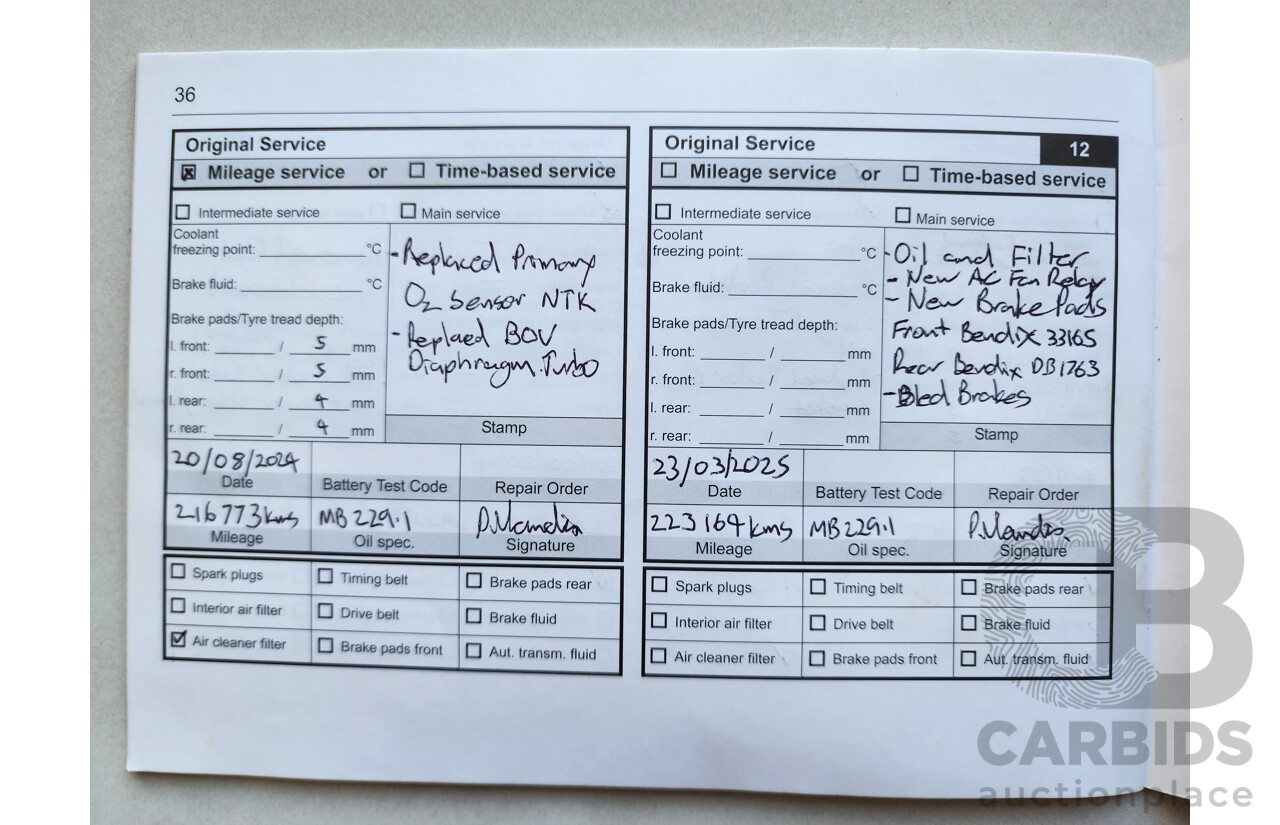 36
Original Service
☒ Mileage service or ☐ Time-based service
☐ Intermediate service ☐ Main service
Coolant
freezing point: °C
Brake fluid: °C
Brake pads/Tyre tread depth:
l. front: / 5 mm
r. front: / 5 mm
l. rear: / 4 mm
r. rear: / 4 mm
- Replaced Primary
O2 Sensor NTK
- Replaced BOV
Diaphragm. Turbo
Stamp
20/08/2024
Date
Battery Test Code
Repair Order
216773kms
Mileage
MB 229.1
Oil spec.
Signature
☐ Spark plugs ☐ Timing belt ☐ Brake pads rear
☐ Interior air filter ☐ Drive belt ☐ Brake fluid
☑ Air cleaner filter ☐ Brake pads front ☐ Aut. transm. fluid
Original Service 12
☐ Mileage service or ☐ Time-based service
☐ Intermediate service ☐ Main service
Coolant
freezing point: °C
Brake fluid: °C
Brake pads/Tyre tread depth:
l. front: / mm
r. front: / mm
l. rear: / mm
r. rear: / mm
- Oil and Filter
- New AC Fan Relay
- New Brake Pads
Front Bendix 33165
Rear Bendix DB1763
- Bled Brakes
Stamp
23/03/2025
Date
Battery Test Code
Repair Order
223164kms
Mileage
MB 229.1
Oil spec.
Signature
☐ Spark plugs ☐ Timing belt ☐ Brake pads rear
☐ Interior air filter ☐ Drive belt ☐ Brake fluid
☐ Air cleaner filter ☐ Brake pads front ☐ Aut. transm. fluid
B
CARBIDS
auctionplace